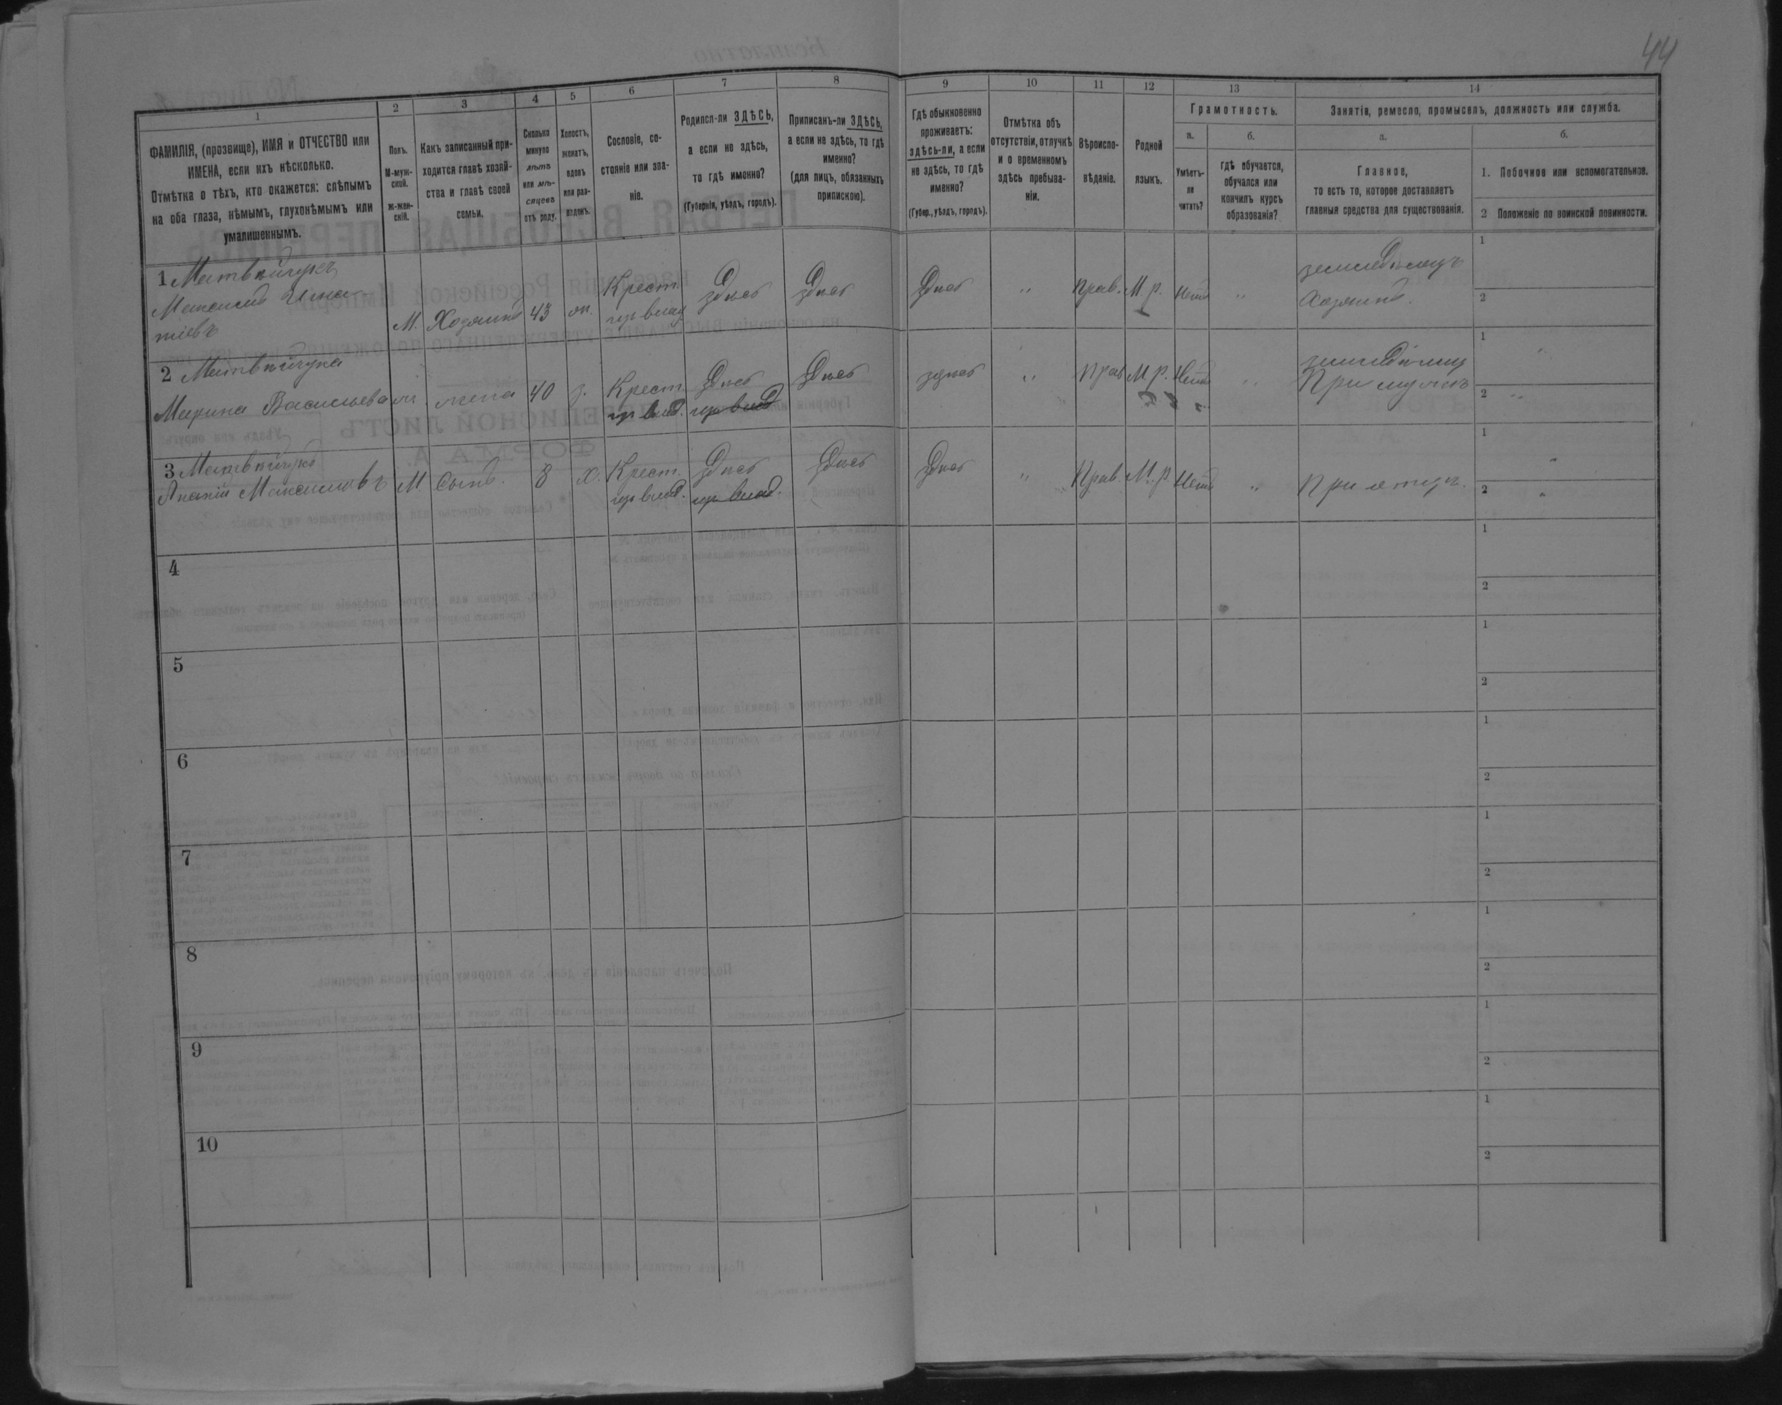 44
1
2
3
4
5
6
7
8
9
10
11
12
13
14
ФАМИЛІЯ, (прозвище), ИМЯ и ОТЧЕСТВО или
ИМЕНА, если ихъ нѣсколько.
Отмѣтка о тѣхъ, кто окажется: слѣпымъ
на оба глаза, нѣмымъ, глухонѣмымъ или
умалишеннымъ.
Полъ.
М-муж-
ской.
Ж-жен-
скій.
Какъ записанный при-
ходится главѣ хозяй-
ства и главѣ своей
семьи.
Сколько
минуло
лѣтъ
или мѣ-
сяцевъ
отъ роду.
Холостъ,
женатъ,
вдовъ
или раз-
веденъ.
Сословіе, со-
стояніе или зва-
ніе.
Родился-ли ЗДѢСЬ,
а если не здѣсь,
то гдѣ именно?
(Губернія, уѣздъ, городъ).
Приписанъ-ли ЗДѢСЬ,
а если не здѣсь, то гдѣ
именно?
(для лицъ, обязанныхъ
припискою).
Гдѣ обыкновенно
проживаетъ:
здѣсь-ли, а если
не здѣсь, то гдѣ
именно?
(Губер., уѣздъ, городъ).
Отмѣтка объ
отсутствіи, отлучкѣ
и о временномъ
здѣсь пребыва-
ніи.
Вѣроиспо-
вѣданіе.
Родной
языкъ.
Грамотность.
а.
Умѣетъ-
ли
читать?
б.
гдѣ обучается,
обучался или
кончилъ курсъ
образованія?
Занятія, ремесло, промыселъ, должность или служба.
а.
Главное,
то есть то, которое доставляетъ
главныя средства для существованія.
б.
1. Побочное или вспомогательное.
2 Положеніе по воинской повинности.
1 Матвѣйчукъ
Максимъ Игна-
тіевъ
М. Хозяинъ 43
Крест.
Здѣсь Здѣсь Здѣсь " Прав. М.р. Нѣтъ "
земледѣлецъ
Хозяинъ.
1
2
2 Матвѣйчука
Марина Васильева
жена 40
Крест.
Здѣсь Здѣсь здѣсь " Прав М.р. Нѣтъ "
земледѣлец
При мужѣ
1 "
2 "
3 Матвѣйчукъ
Максимовъ М Сынъ. 8 х. Крест.
Здѣсь Здѣсь Здѣсь " Прав. М.р Нѣтъ "
При отцѣ.
1 "
2 "
4
1
2
5
1
2
6
1
2
7
1
2
8
1
2
9
1
2
10
1
2